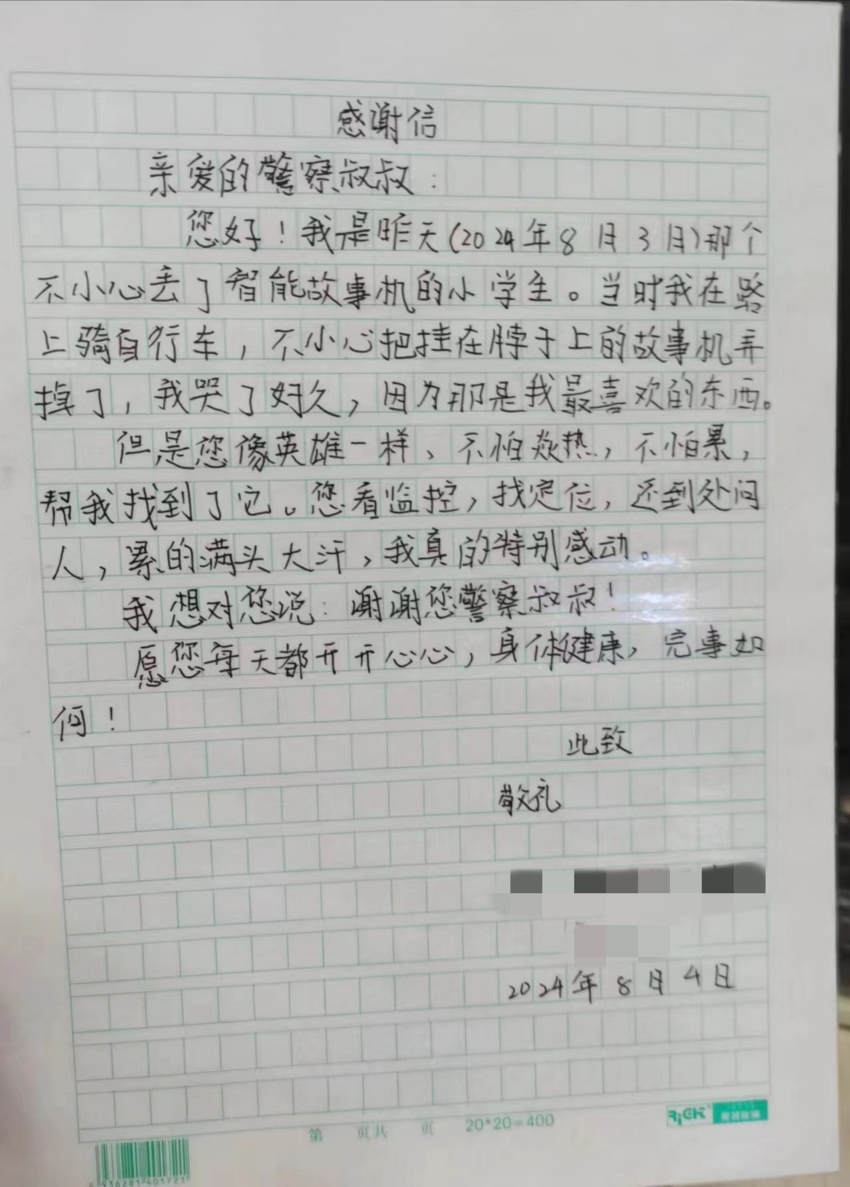 感谢信
亲爱的警察叔叔：
您好！我是昨天(2024年8月3日)那个
不小心丢了智能故事机的小学生。当时我在路
上骑自行车，不小心把挂在脖子上的故事机弄
掉了，我哭了好久，因为那是我最喜欢的东西。
但是您像英雄一样、不怕炎热，不怕累，
帮我找到了它。您看监控，找定位，还到处问
人，累的满头大汗，我真的特别感动。
我想对您说：谢谢您警察叔叔！
愿您每天都开开心心，身体健康，完事如
何！
此致
敬礼
2024年8月4日
第 页共 页 20*20=400